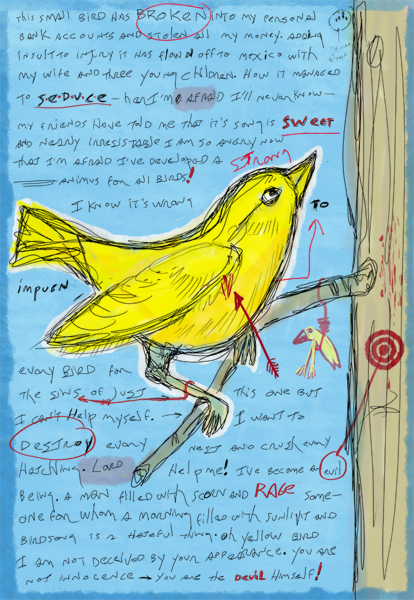 this small bird has BROKEN into my personal
bank accounts and stolen all my money. Adding
insult to injury it has flown off to mexico with
my wife and three young children. How it managed
to SEDUCE - her I'm AFRAID I'll never know -
my friends have told me that it's song is SWEET
and nearly irresistable I am so angry now
that I'm afraid I've developed a STRONG
animus for all birds!
I know it's wrong TO
impugn
every BIRD for
the sins of just this one but
I can't help myself. → I want to
DESTROY every nest and crush every
hatchling. Lord Help me! I've become an evil
Being. A man filled with scorn and RAGE some-
one for whom a morning filled with sunlight and
birdsong is a hateful thing. Oh yellow BIRD
I am not deceived by your appearance. You are
not innocence → you are the Devil Himself!